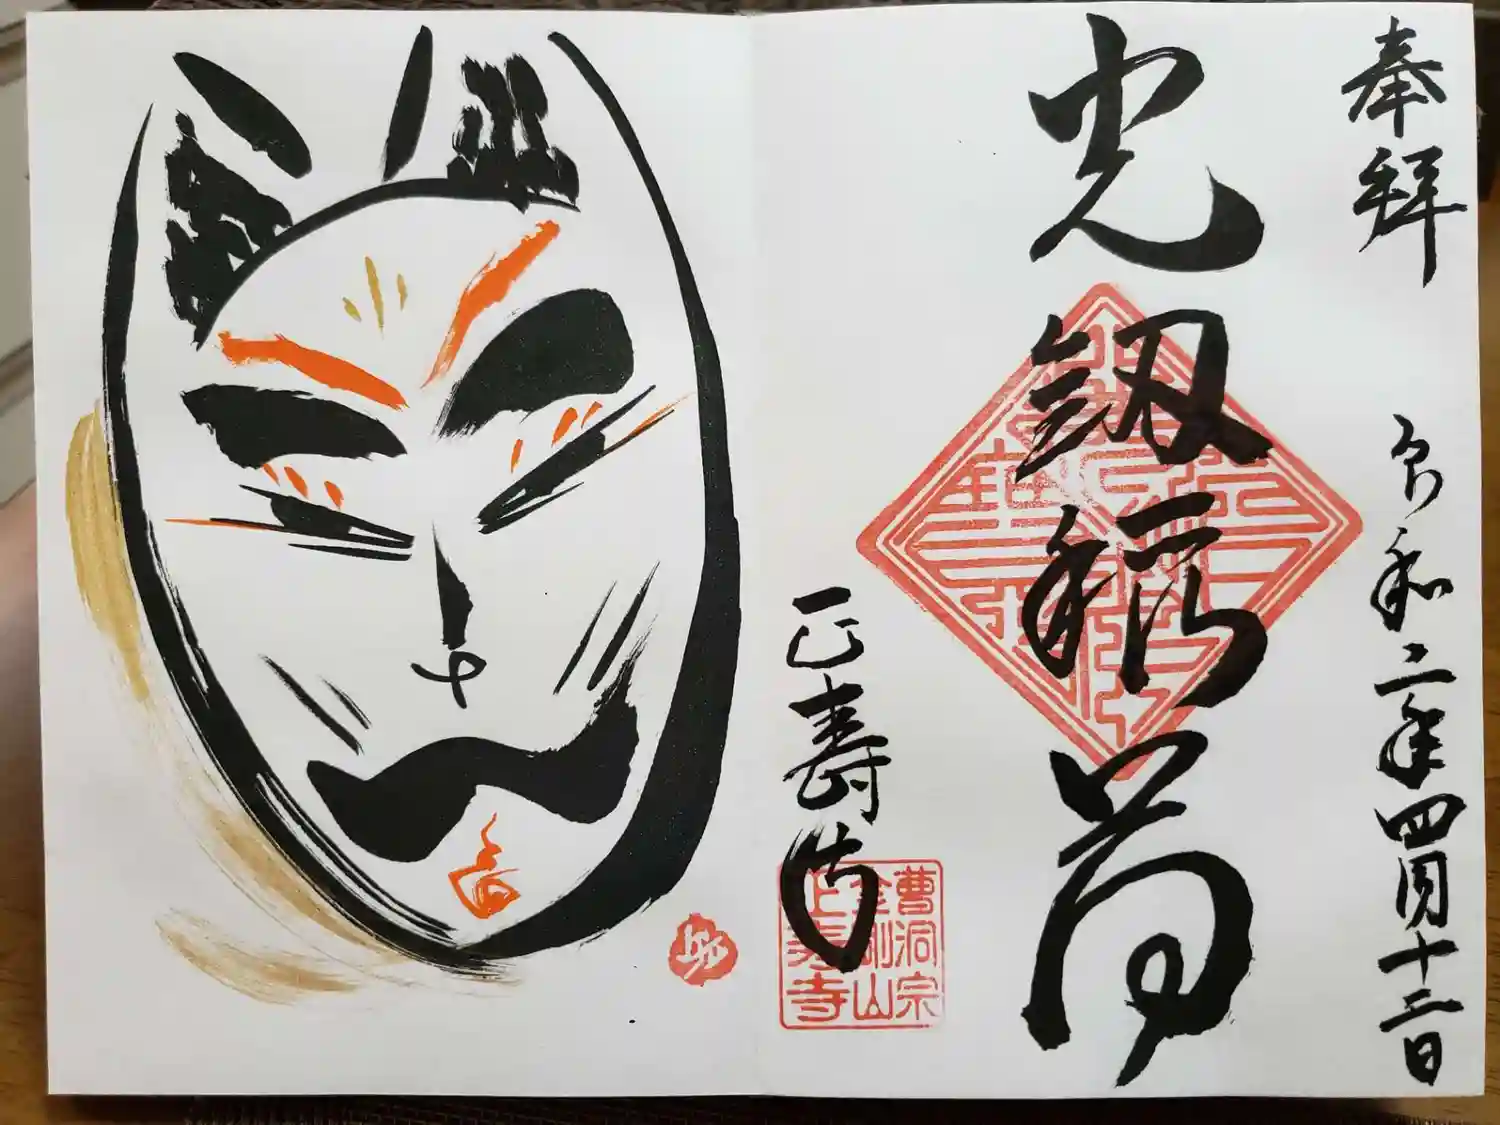 奉拝
令和二年四月十二日
光剱稲荷
正寿寺
曹洞宗
金剛山
正寿寺